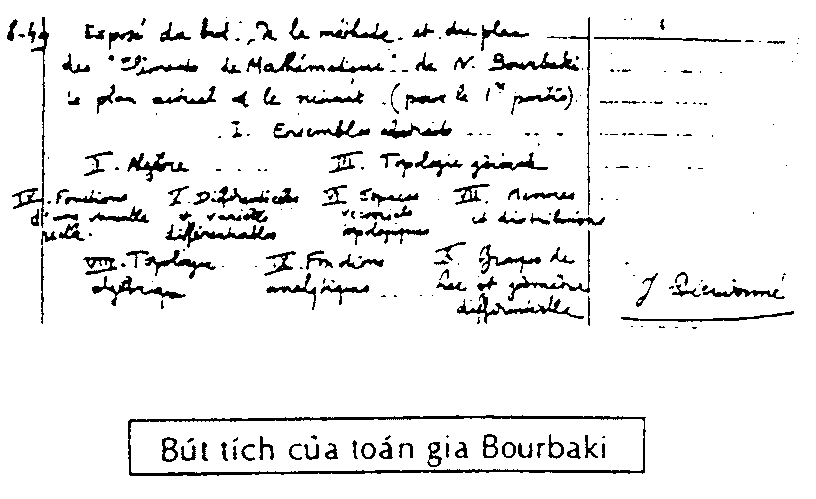 Exposé du but, de la méthode et du plan
des "Eléments de Mathématique" de N. Bourbaki
Le plan actuel est le suivant (pour la 1re partie)
I. Ensembles abstraits
II. Algèbre III. Topologie générale
IV. Fonctions d'une variable réelle. V. Différentielles et variétés différentiables VI. Espaces vectoriels topologiques VII. Mesures et distributions
VIII. Topologie algébrique IX. Fonctions analytiques X. Groupes de Lie et géométrie différentielle
J Dieudonné
Bút tích của toán gia Bourbaki